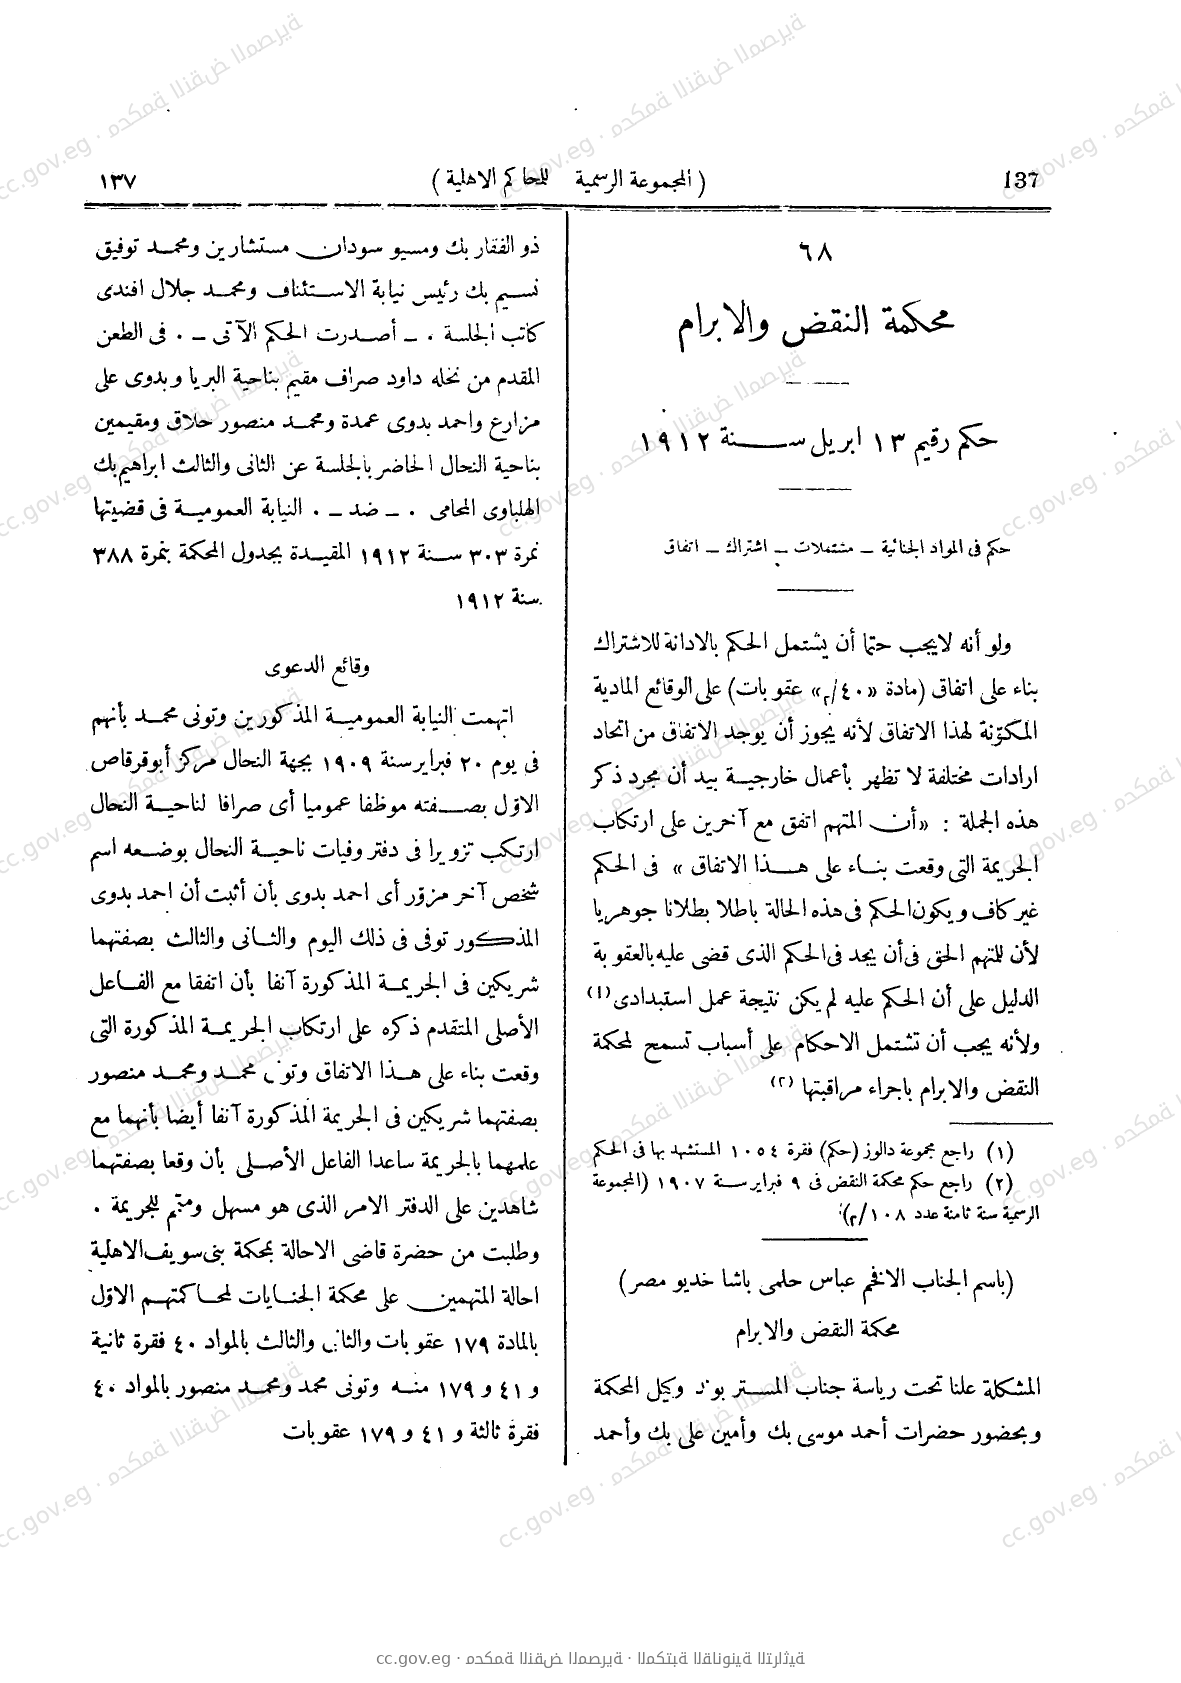 137
( المجموعة الرسمية للمحاكم الاهلية )
١٣٧
٦٨
محكمة النقض والابرام
حكم رقيم ١٣ ابريل سنة ١٩١٢
حكم فى المواد الجنائية ـ مشتملات ـ اشتراك ـ اتفاق
ولو أنه لايجب حتما أن يشتمل الحكم بالادانة للاشتراك
بناء على اتفاق (مادة «٤٠/٢» عقوبات) على الوقائع المادية
المكوّنة لهذا الاتفاق لأنه يجوز أن يوجد الاتفاق من اتحاد
ارادات مختلفة لا تظهر بأعمال خارجية بيد أن مجرد ذكر
هذه الجملة : «أن المتهم اتفق مع آخرين على ارتكاب
الجريمة التى وقعت بناء على هذا الاتفاق» فى الحكم
غير كاف ويكون الحكم فى هذه الحالة باطلا بطلانا جوهريا
لأن للمتهم الحق فى أن يجد فى الحكم الذى قضى عليه بالعقوبة
الدليل على أن الحكم عليه لم يكن نتيجة عمل استبدادى (١)
ولأنه يجب أن تشتمل الاحكام على أسباب تسمح لمحكمة
النقض والابرام باجراء مراقبتها (٢)
(١) راجع مجموعة دالوز (حكم) فقرة ١٠٥٤ المستشهد بها فى الحكم
(٢) راجع حكم محكمة النقض فى ٩ فبراير سنة ١٩٠٧ (المجموعة
الرسمية سنة ثامنة عدد ١٠٨/٢)
(باسم الجناب الافخم عباس حلمى باشا خديو مصر)
محكمة النقض والابرام
المشكلة علنا تحت رياسة جناب المستر بوند وكيل المحكمة
وبحضور حضرات أحمد موسى بك وأمين على بك وأحمد
ذو الفقار بك ومسيو سودان مستشارين ومحمد توفيق
نسيم بك رئيس نيابة الاستئناف ومحمد جلال افندى
كاتب الجلسة . ـ أصدرت الحكم الآتى ـ . فى الطعن
المقدم من نخله داود صراف مقيم بناحية البريا وبدوى على
مزارع واحمد بدوى عمدة ومحمد منصور حلاق ومقيمين
بناحية النحال الحاضر بالجلسة عن الثانى والثالث ابراهيم بك
الهلباوى المحامى . ـ ضد ـ . النيابة العمومية فى قضيتها
نمرة ٣٠٣ سنة ١٩١٢ المقيدة بجدول المحكمة بنمرة ٣٨٨
سنة ١٩١٢
وقائع الدعوى
اتهمت النيابة العمومية المذكورين وتونى محمد بأنهم
فى يوم ٢٠ فبراير سنة ١٩٠٩ بجهة النحال مركز أبوقرقاص
الاوّل بصفته موظفا عموميا أى صرافا لناحية النحال
ارتكب تزويرا فى دفتر وفيات ناحية النحال بوضعه اسم
شخص آخر مزوّر أى احمد بدوى بأن أثبت أن احمد بدوى
المذكور توفى فى ذلك اليوم والثانى والثالث بصفتهما
شريكين فى الجريمة المذكورة آنفا بأن اتفقا مع الفاعل
الأصلى المتقدم ذكره على ارتكاب الجريمة المذكورة التى
وقعت بناء على هذا الاتفاق وتونى محمد ومحمد منصور
بصفتهما شريكين فى الجريمة المذكورة آنفا أيضا بأنهما مع
علمهما بالجريمة ساعدا الفاعل الأصلى بأن وقعا بصفتهما
شاهدين على الدفتر الامر الذى هو مسهل ومتمم للجريمة .
وطلبت من حضرة قاضى الاحالة بمحكمة بنى سويف الاهلية
احالة المتهمين على محكمة الجنايات لمحاكمتهم الاوّل
بالمادة ١٧٩ عقوبات والثانى والثالث بالمواد ٤٠ فقرة ثانية
و ٤١ و ١٧٩ منه وتونى محمد ومحمد منصور بالمواد ٤٠
فقرة ثالثة و ٤١ و ١٧٩ عقوبات
cc.gov.eg · محكمة النقض المصرية · المكتبة القانونية التراثية